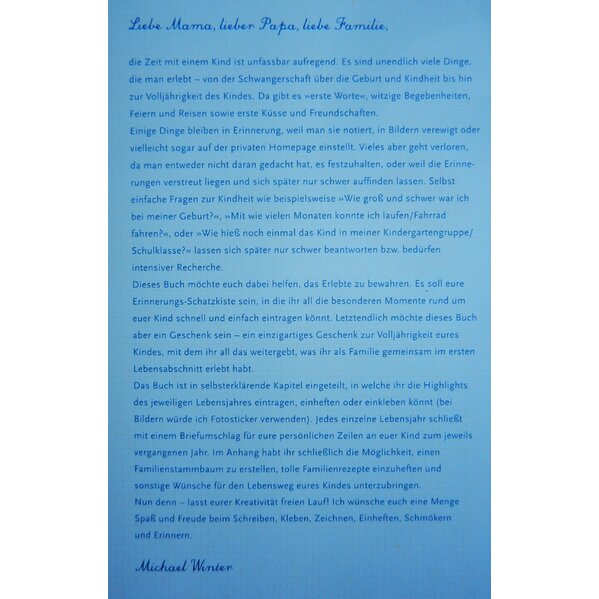 Liebe Mama, lieber Papa, liebe Familie,
die Zeit mit einem Kind ist unfassbar aufregend. Es sind unendlich viele Dinge,
die man erlebt – von der Schwangerschaft über die Geburt und Kindheit bis hin
zur Volljährigkeit des Kindes. Da gibt es »erste Worte«, witzige Begebenheiten,
Feiern und Reisen sowie erste Küsse und Freundschaften.
Einige Dinge bleiben in Erinnerung, weil man sie notiert, in Bildern verewigt oder
vielleicht sogar auf der privaten Homepage einstellt. Vieles aber geht verloren,
da man entweder nicht daran gedacht hat, es festzuhalten, oder weil die Erinne-
rungen verstreut liegen und sich später nur schwer auffinden lassen. Selbst
einfache Fragen zur Kindheit wie beispielsweise »Wie groß und schwer war ich
bei meiner Geburt?«, »Mit wie vielen Monaten konnte ich laufen/Fahrrad
fahren?«, oder »Wie hieß noch einmal das Kind in meiner Kindergartengruppe/
Schulklasse?« lassen sich später nur schwer beantworten bzw. bedürfen
intensiver Recherche.
Dieses Buch möchte euch dabei helfen, das Erlebte zu bewahren. Es soll eure
Erinnerungs-Schatzkiste sein, in die ihr all die besonderen Momente rund um
euer Kind schnell und einfach eintragen könnt. Letztendlich möchte dieses Buch
aber ein Geschenk sein – ein einzigartiges Geschenk zur Volljährigkeit eures
Kindes, mit dem ihr all das weitergebt, was ihr als Familie gemeinsam im ersten
Lebensabschnitt erlebt habt.
Das Buch ist in selbsterklärende Kapitel eingeteilt, in welche ihr die Highlights
des jeweiligen Lebensjahres eintragen, einheften oder einkleben könnt (bei
Bildern würde ich Fotosticker verwenden). Jedes einzelne Lebensjahr schließt
mit einem Briefumschlag für eure persönlichen Zeilen an euer Kind zum jeweils
vergangenen Jahr. Im Anhang habt ihr schließlich die Möglichkeit, einen
Familienstammbaum zu erstellen, tolle Familienrezepte einzuheften und
sonstige Wünsche für den Lebensweg eures Kindes unterzubringen.
Nun denn – lasst eurer Kreativität freien Lauf! Ich wünsche euch eine Menge
Spaß und Freude beim Schreiben, Kleben, Zeichnen, Einheften, Schmökern
und Erinnern.
Michael Winter